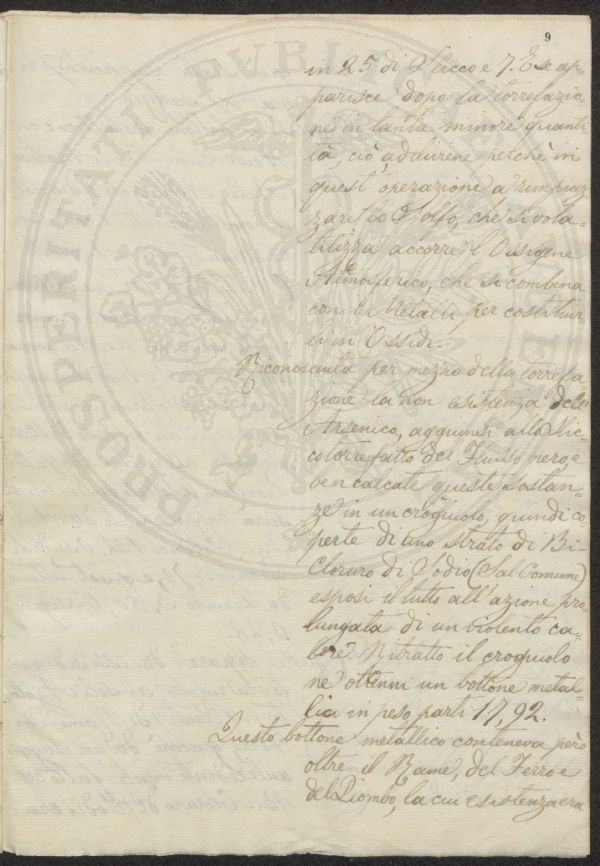 9
in 25 di Slicco e 7. E se ap=
parisce dopo la torrefazio
ne in tanta minore quanti
tà, ciò addiviene perchè in
quest' operazione a rimpiaz
zare lo Solfo, che si vola=
tilizza accorre l'Ossigene
Atmosferico, che si combina
con i Metalli per costituir
li in Ossidi.
Riconosciuta per mezzo della torrefa
zione la non esistenza dell'
Arsenico, aggiunsi allo Slic
co torrefatto del Flusso nero, e
ben calcate queste sostan=
ze in un crogiuolo, quindi co
perte di uno strato di Bi-
Cloruro di Sodio (Sal Comune)
esposi il tutto all'azione pro
lungata di un violento ca=
lore. Ritratto il crogiuolo
ne ottenni un bottone metal=
lico in peso parti 17,92.
Questo bottone metallico conteneva però
oltre il Rame, del Ferro e
del Piombo, la cui esistenza era
PROSPERITATI PUBLICAE